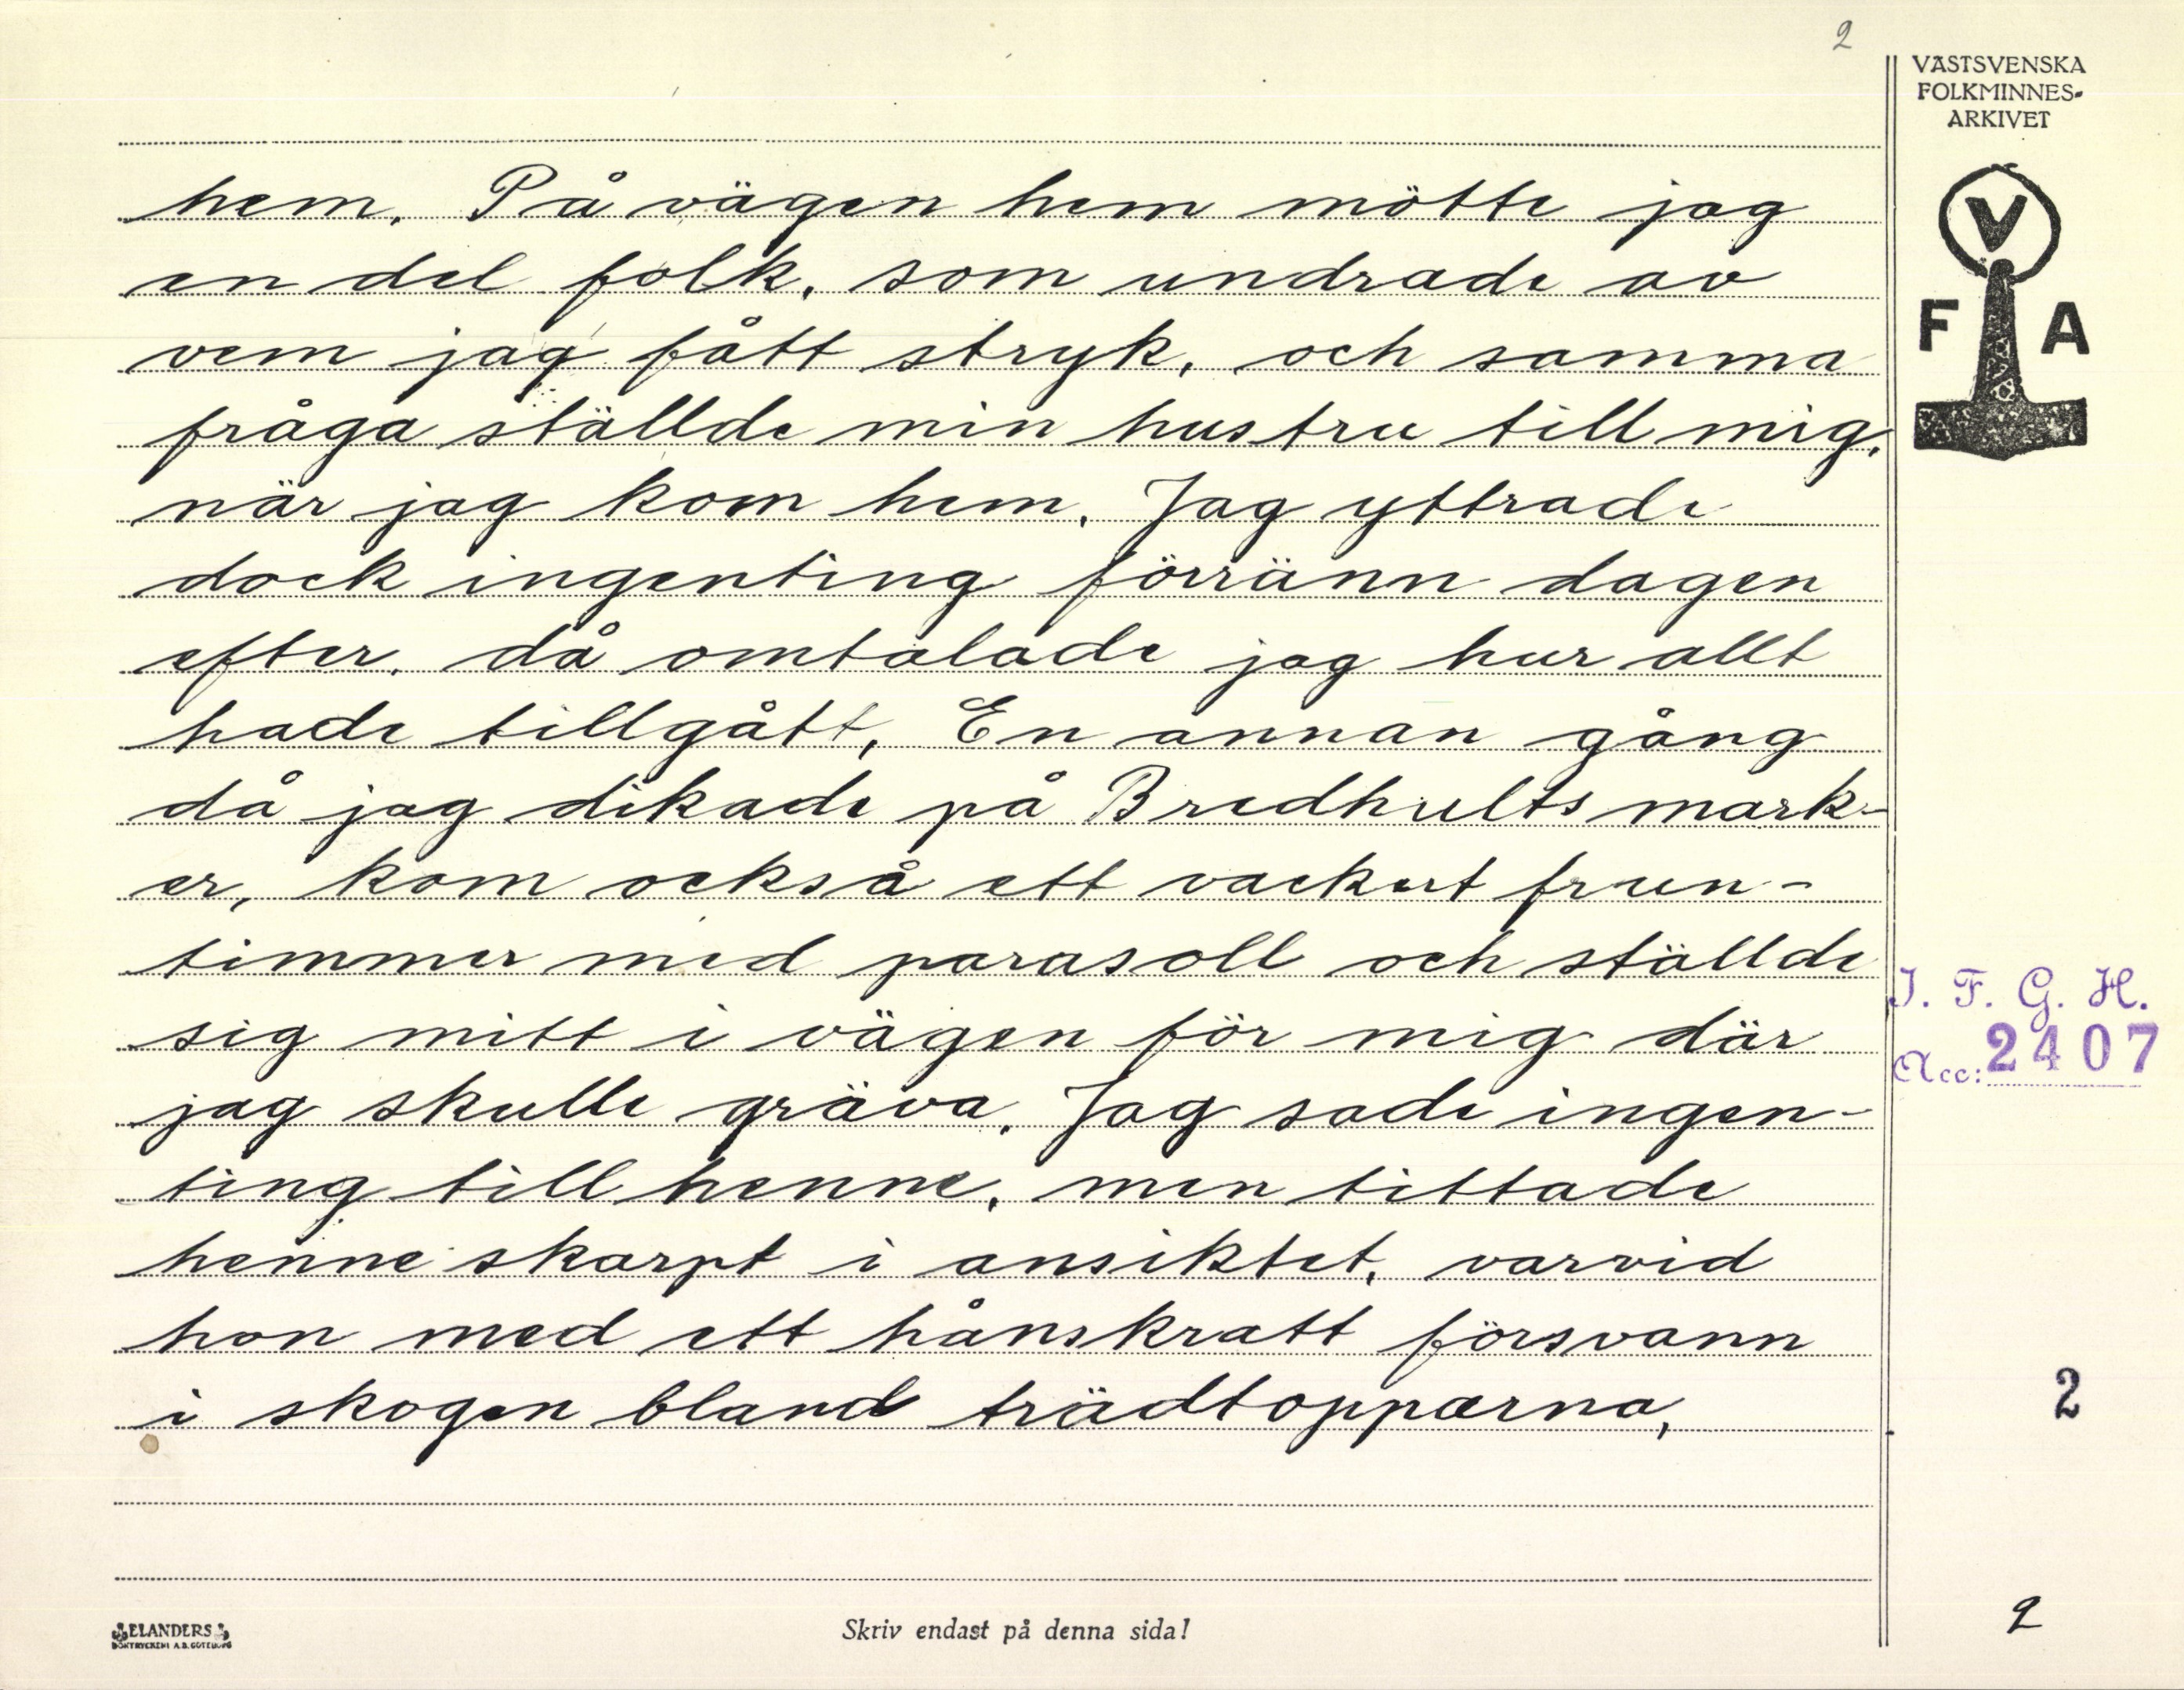 2
VÄSTSVENSKA
FOLKMINNES-
ARKIVET
V
F A
hem. På vägen hem mötte jag
en del folk, som undrade av
vem jag fått stryk, och samma
fråga ställde min hustru till mig,
när jag kom hem. Jag yttrade
dock ingenting förränn dagen
efter, då omtalade jag hur allt
hade tillgått, En annan gång
då jag dikade på Bredhults mark-
er, kom också ett vackert frun-
timmer med parasoll och ställde
sig mitt i vägen för mig där
jag skulle gräva. Jag sade ingen-
ting till henne, men tittade
henne skarpt i ansiktet, varvid
hon med ett hånskratt försvann
i skogen bland trädtopparna,
I. F. G. H.
Acc: 2407
2
2
ELANDERS
BOKTRYCKERI A.B. GÖTEBORG
Skriv endast på denna sida!